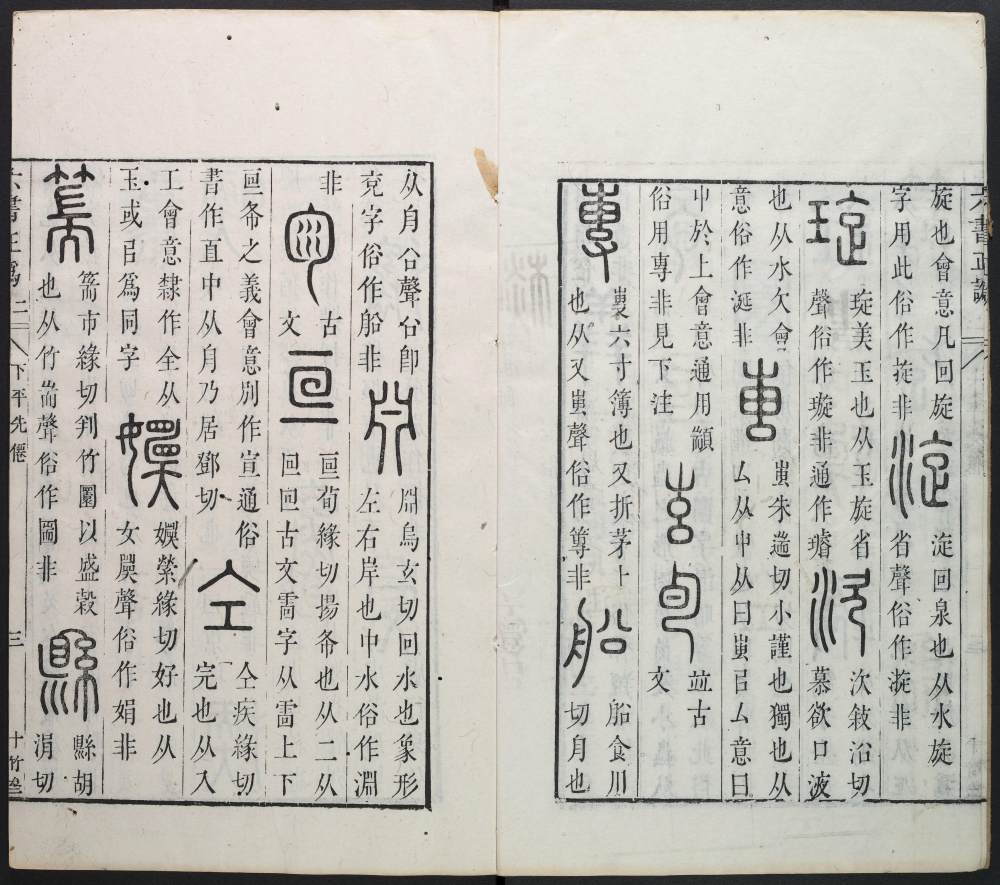 旋也會意凡回旋
字用此俗作㨱非
淀 淀回泉也从水旋
省聲俗作漩非
琁 琁美玉也从玉旋省
聲俗作璇非通作璿
㳄 㳄敘沿切
慕欲口液
也从水欠會
意俗作涎非
叀 叀朱遄切小謹也獨也从
厶从屮从曰叀㠯厶意曰
屮於上會意通用顓
俗用專非見下注
竝古
文
專 叀六寸簿也又折茅卜
也从又叀聲俗作篿非
船 船食川
切舟也
从舟㕣聲㕣卽
兗字俗作舩非
淵烏玄切回水也象形
左右岸也中水俗作渊
非
古
文
亘 亘荀緣切揚布也从二从
囘囘古文雷字从雷上下
亘布之義會意別作宣通俗
書作直中从舟乃居鄧切
仝 仝疾緣切
完也从入
工會意隸作全从
玉或㠯爲同字
嬛 嬛縈緣切好也从
女瞏聲俗作娟非
篅 篅市緣切判竹圜以盛穀
也从竹耑聲俗作圌非
縣 縣胡
涓切
六書正譌 二 下平先僊 三 十竹齋